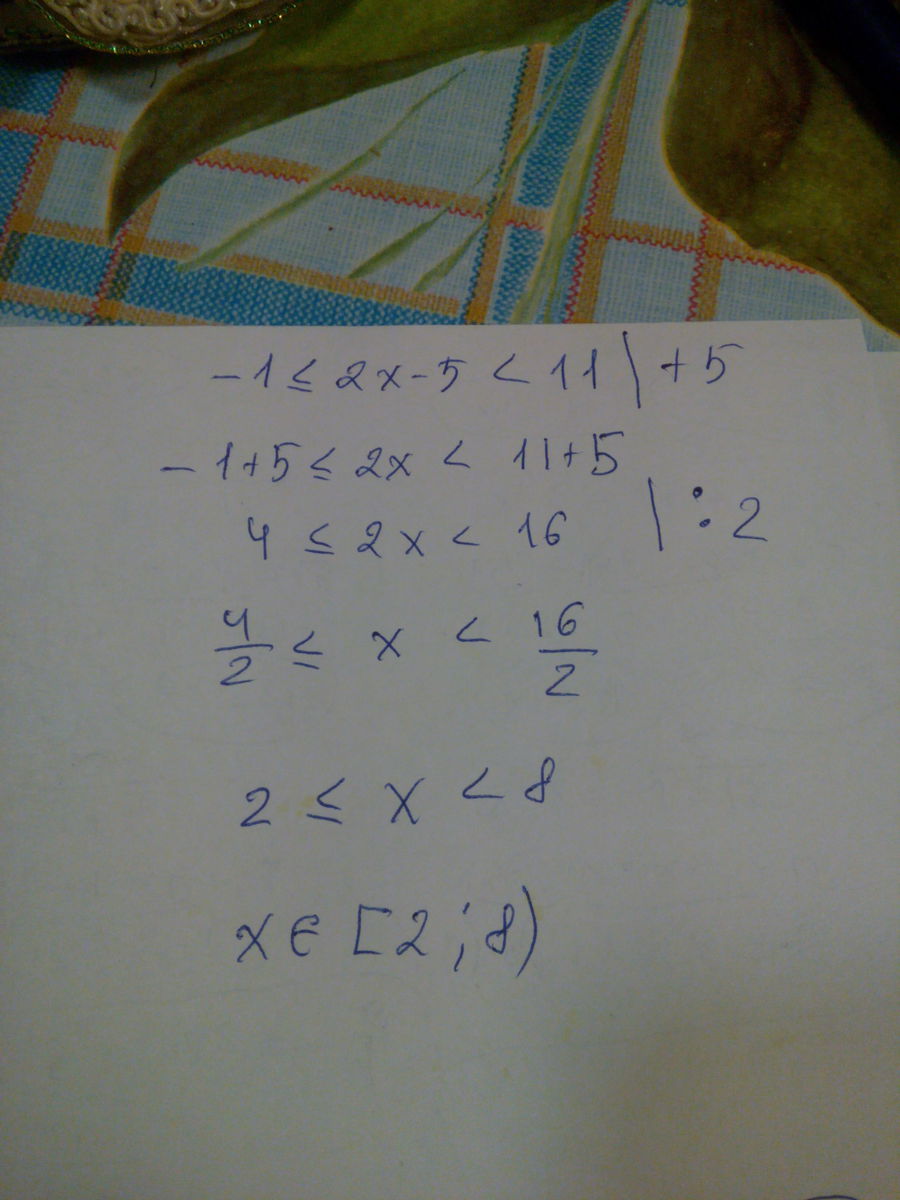 -1 ≤ 2x-5 < 11 | +5
-1+5 ≤ 2x < 11+5
4 ≤ 2x < 16 | :2
4/2 ≤ x < 16/2
2 ≤ x < 8
x ∈ [2;8)